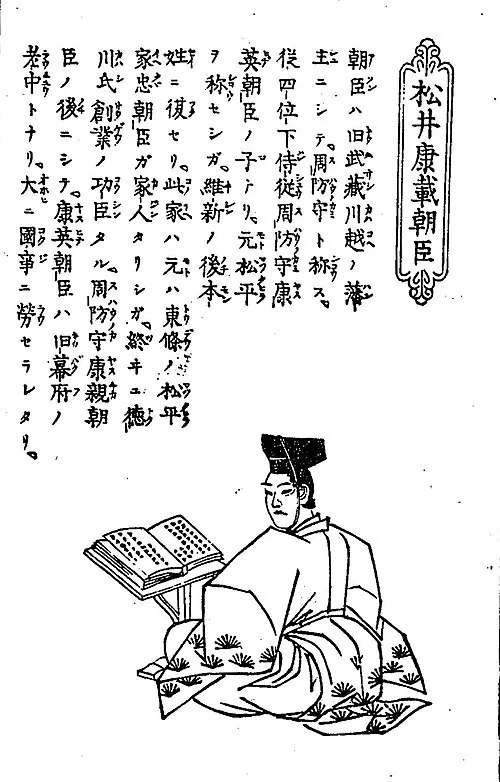 松井康載朝臣
朝臣ハ旧武藏川越ノ藩
主ニシテ周防守ト称ス。
従四位下侍従周防守康
英朝臣ノ子ナリ。元松平
ヲ称セシガ、維新ノ後本
姓ニ復セリ。此家ハ元ハ東條ノ松平
家忠朝臣ガ家人タリシガ、終ヰニ徳
川氏創業ノ功臣タル。周防守康親朝
臣ノ後ニシテ、康英朝臣ハ旧幕府ノ
老中トナリ。大ニ國事ニ勞セラレタリ。